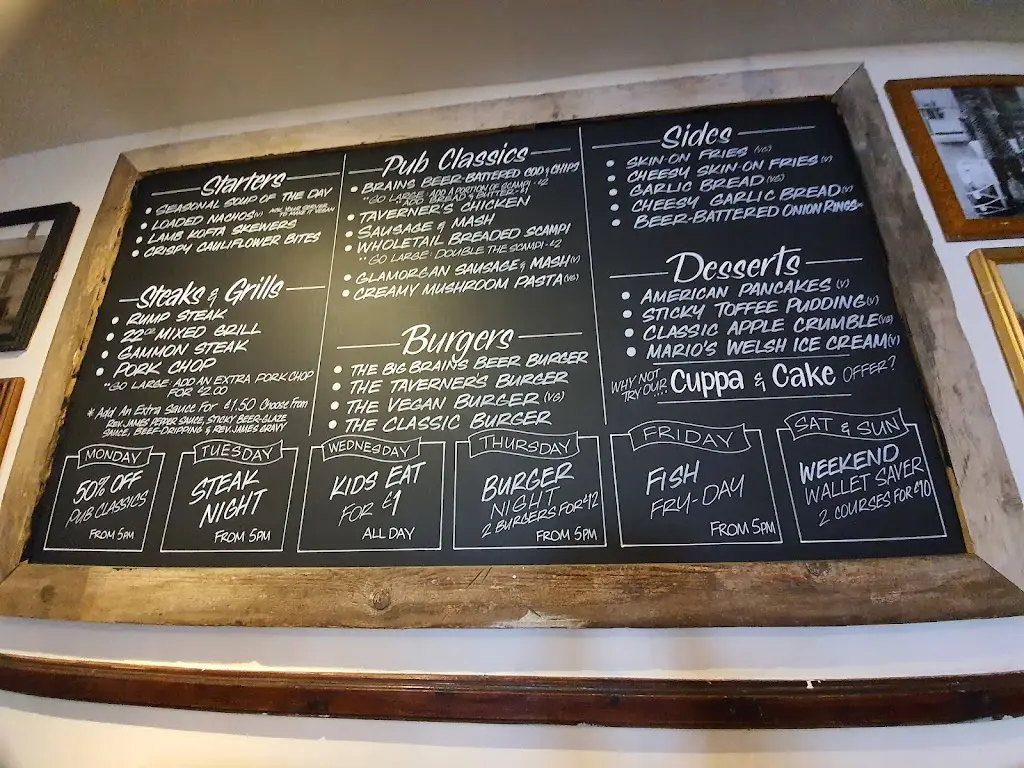 Starters
• SEASONAL SOUP OF THE DAY
• LOADED NACHOS (V) ASK YOUR SERVER
TO MAKE IT VEGAN
• LAMB KOFTA SKEWERS
• CRISPY CAULIFLOWER BITES
Steaks & Grills
• RUMP STEAK
• 22oz MIXED GRILL
• GAMMON STEAK
• PORK CHOP
**GO LARGE: ADD AN EXTRA PORK CHOP
FOR £2.00
* Add An Extra Sauce For £1.50 Choose From
REV. JAMES PEPPER SAUCE, STICKY BEER-GLAZE
SAUCE, BEEF-DRIPPING & REV. JAMES GRAVY
Pub Classics
• BRAINS BEER-BATTERED COD & CHIPS
**GO LARGE: ADD A PORTION OF SCAMPI - £2
ADD BREAD & BUTTER -
• TAVERNER'S CHICKEN
• SAUSAGE & MASH
• WHOLETAIL BREADED SCAMPI
**GO LARGE: DOUBLE THE SCAMPI - £2
• GLAMORGAN SAUSAGE & MASH (V)
• CREAMY MUSHROOM PASTA (VG)
Burgers
• THE BIG BRAINS BEER BURGER
• THE TAVERNER'S BURGER
• THE VEGAN BURGER (VG)
• THE CLASSIC BURGER
Sides
• SKIN-ON FRIES (VG)
• CHEESY SKIN-ON FRIES (V)
• GARLIC BREAD (VG)
• CHEESY GARLIC BREAD (V)
• BEER-BATTERED ONION RINGS
Desserts
• AMERICAN PANCAKES (V)
• STICKY TOFFEE PUDDING (V)
• CLASSIC APPLE CRUMBLE (VG)
• MARIO'S WELSH ICE CREAM (V)
WHY NOT
TRY OUR.... Cuppa & Cake OFFER?
MONDAY
50% OFF
PUB CLASSICS
FROM 5PM
TUESDAY
STEAK
NIGHT
FROM 5PM
WEDNESDAY
KIDS EAT
FOR £1
ALL DAY
THURSDAY
BURGER
NIGHT
2 BURGERS FOR £12
FROM 5PM
FRIDAY
FISH
FRY-DAY
FROM 5PM
SAT & SUN
WEEKEND
WALLET SAVER
2 COURSES FOR £10